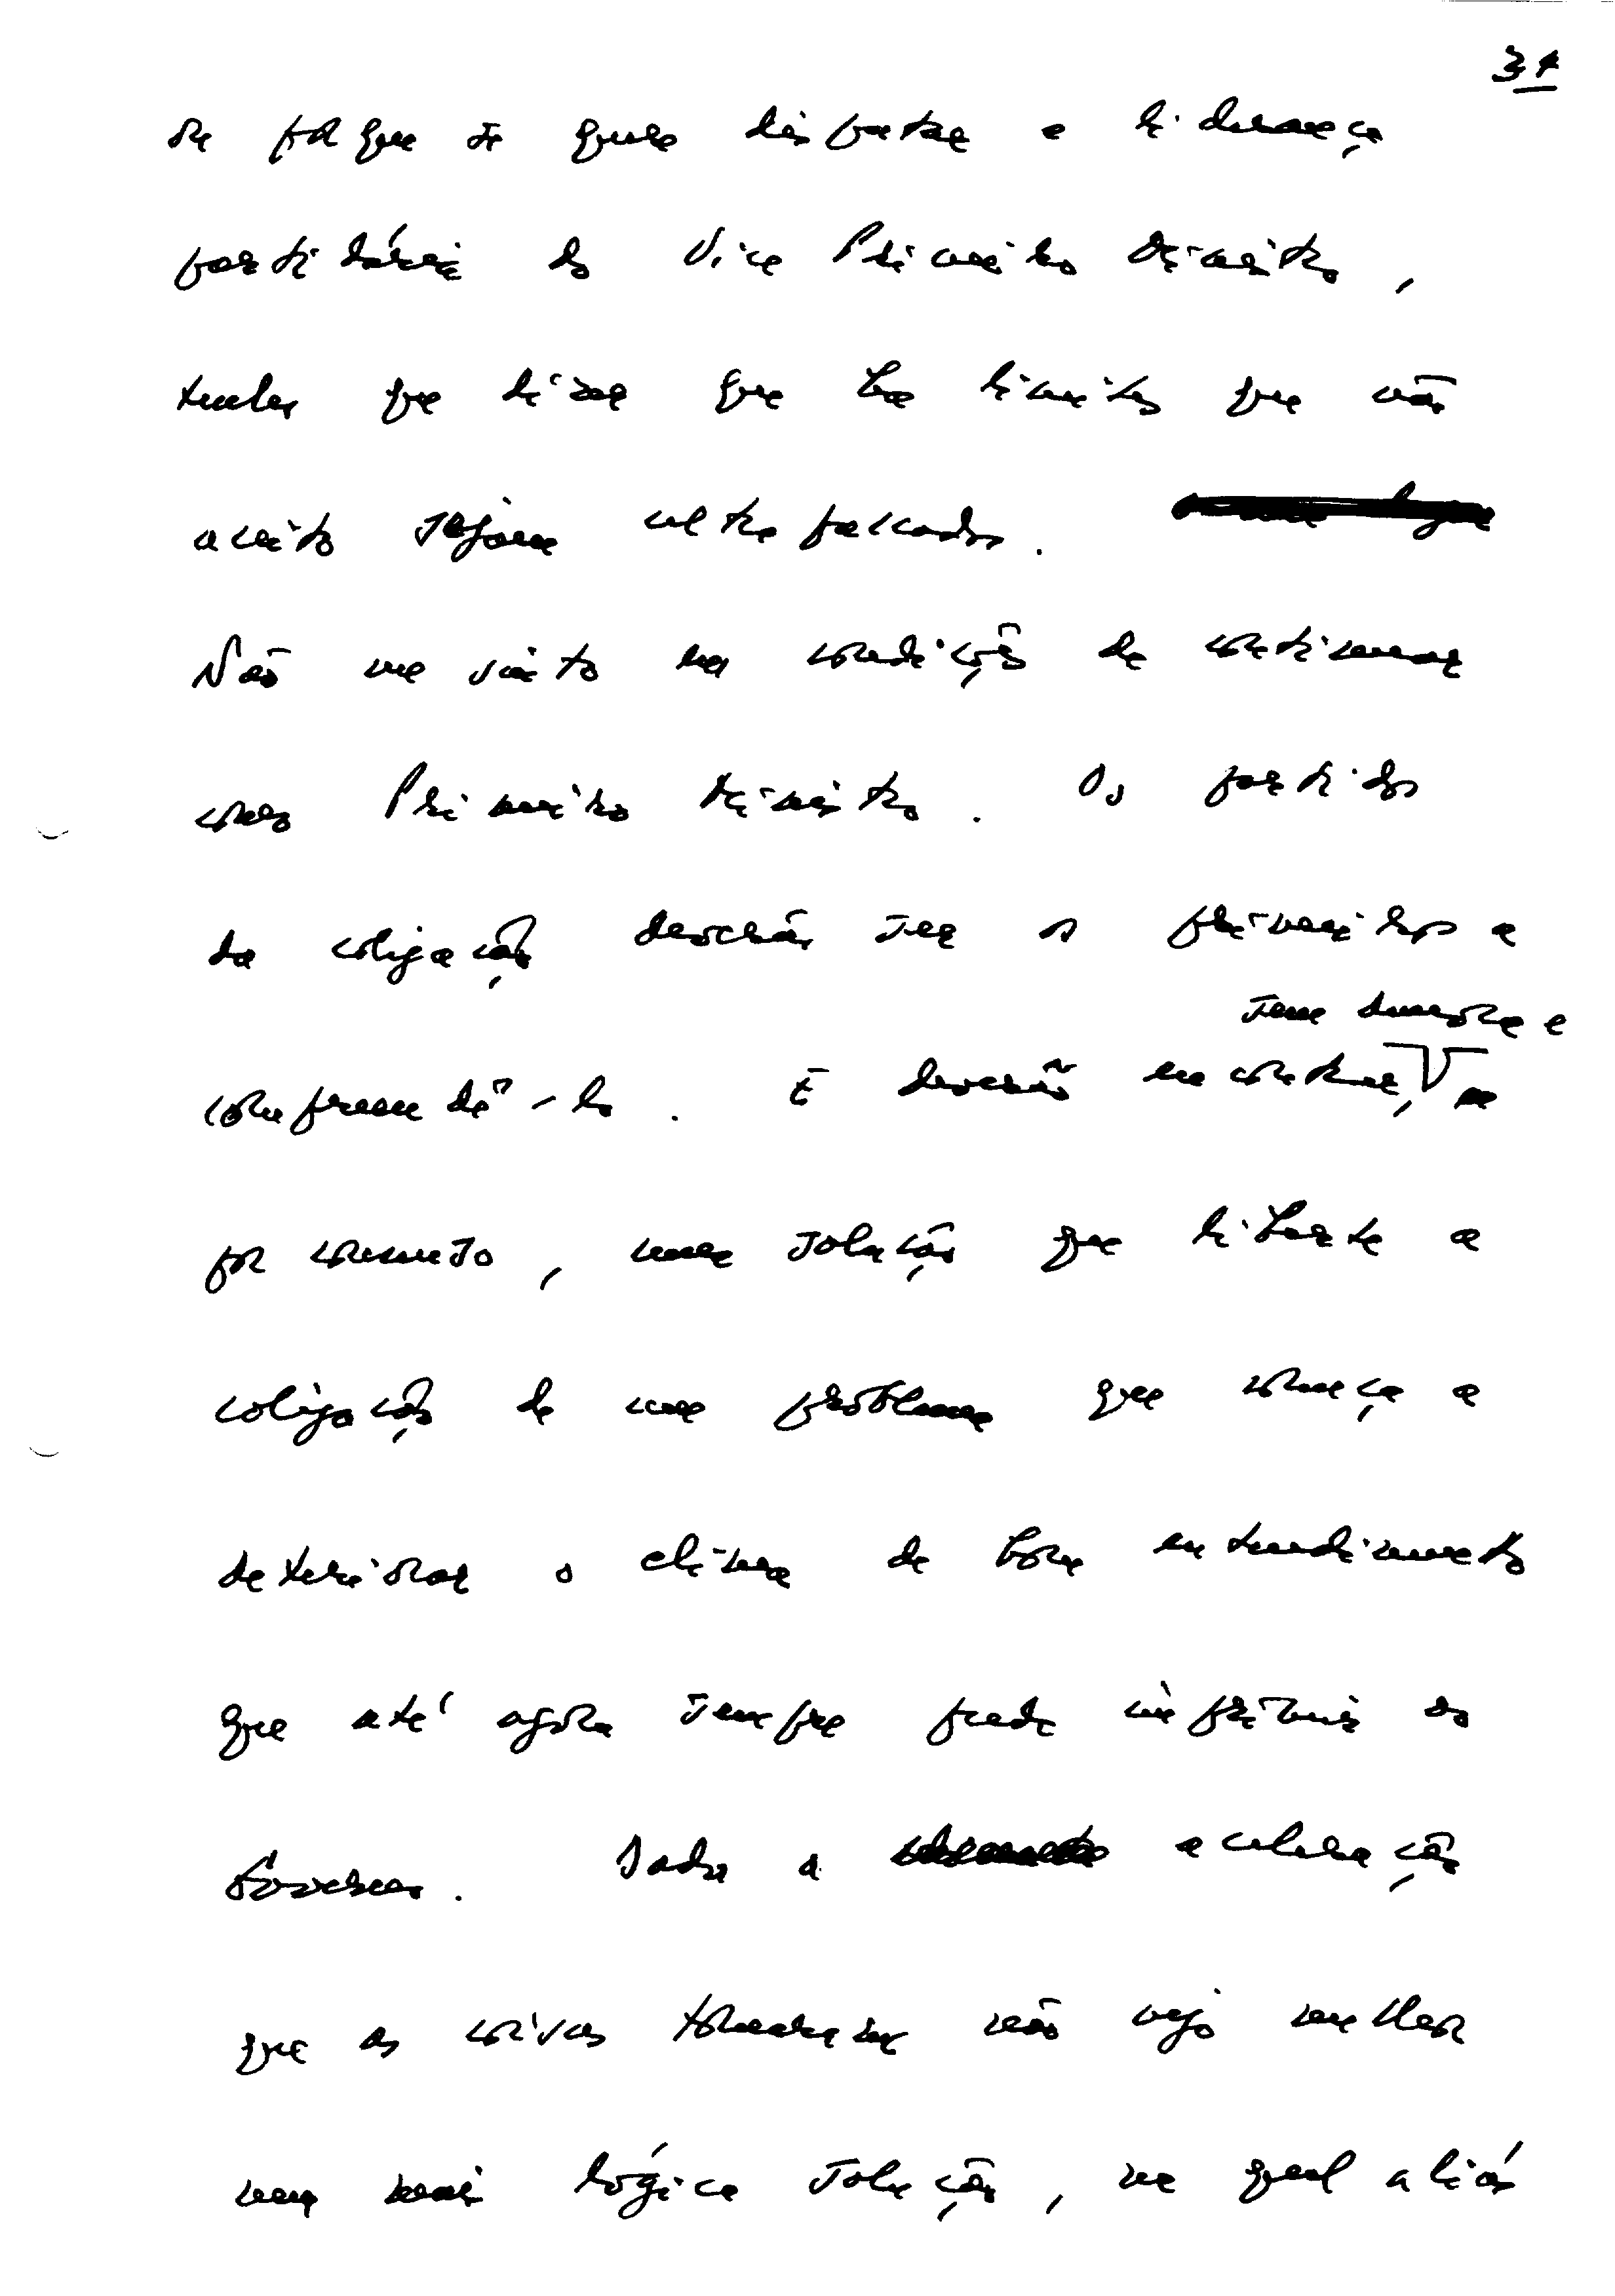 31
se porque se queira disputar a liderança
partidária do Vice Primeiro Ministro,
tenho que dizer que há limites que não
aceito sejam ultrapassados.
Não me sinto em condições de continuar
como Primeiro Ministro. Os partidos
da coligação deverão ser os primeiros a
sem demora e
compreendê-lo. E deverão encontrar,
por consenso, uma solução que liberte a
coligação de um problema que começa a
deteriorar o clima de bom entendimento
que até agora sempre pude imprimir ao
Governo. Dada a aceleração
que as coisas tomaram não vejo melhor
nem mais lógica solução, na qual aliás